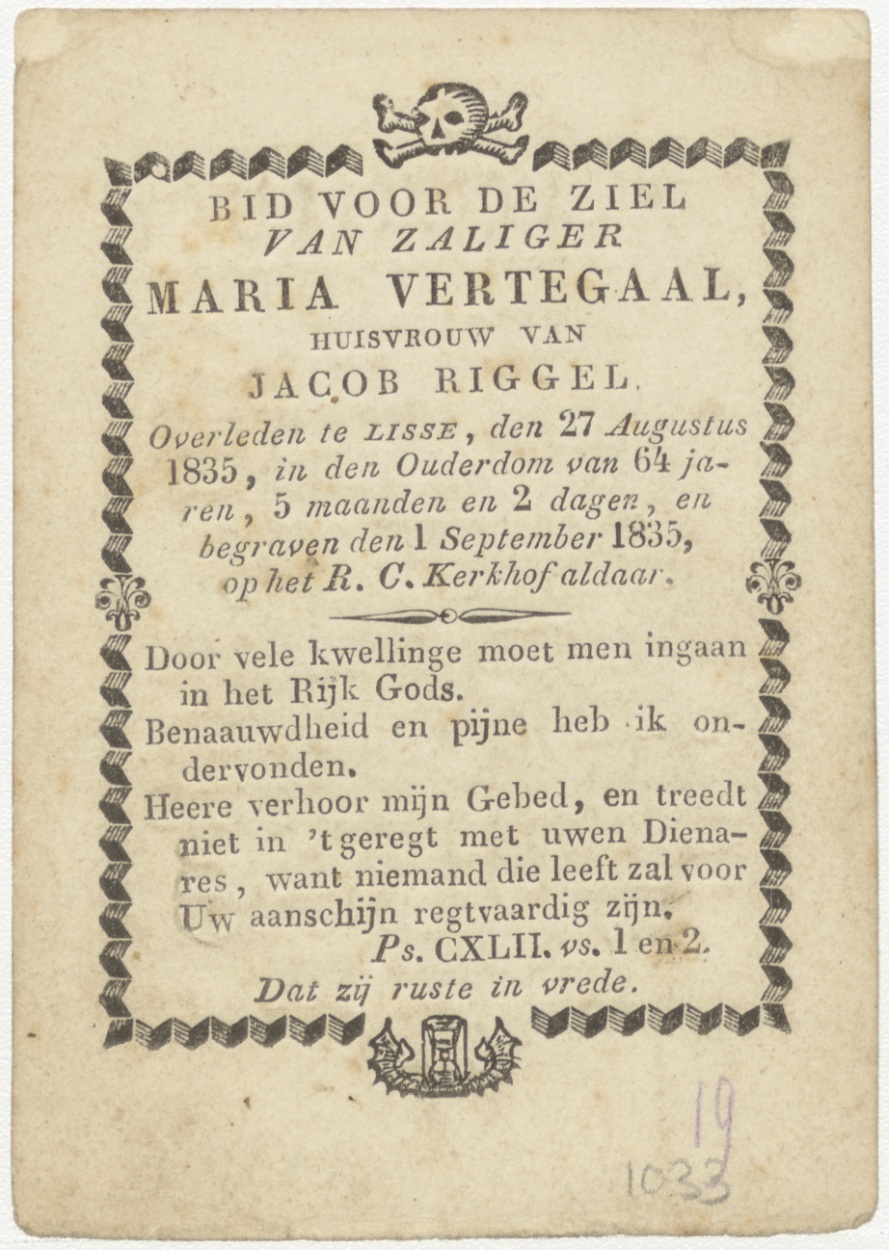 BID VOOR DE ZIEL
VAN ZALIGER
MARIA VERTEGAAL,
HUISVROUW VAN
JACOB RIGGEL.
Overleden te LISSE, den 27 Augustus
1835, in den Ouderdom van 64 ja-
ren, 5 maanden en 2 dagen, en
begraven den 1 September 1835,
op het R. C. Kerkhof aldaar.
Door vele kwellinge moet men ingaan
in het Rijk Gods.
Benaauwdheid en pijne heb ik on-
dervonden.
Heere verhoor mijn Gebed, en treedt
niet in 't geregt met uwen Diena-
res, want niemand die leeft zal voor
Uw aanschijn regtvaardig zijn.
Ps. CXLII. vs. 1 en 2.
Dat zij ruste in vrede.
19
1033